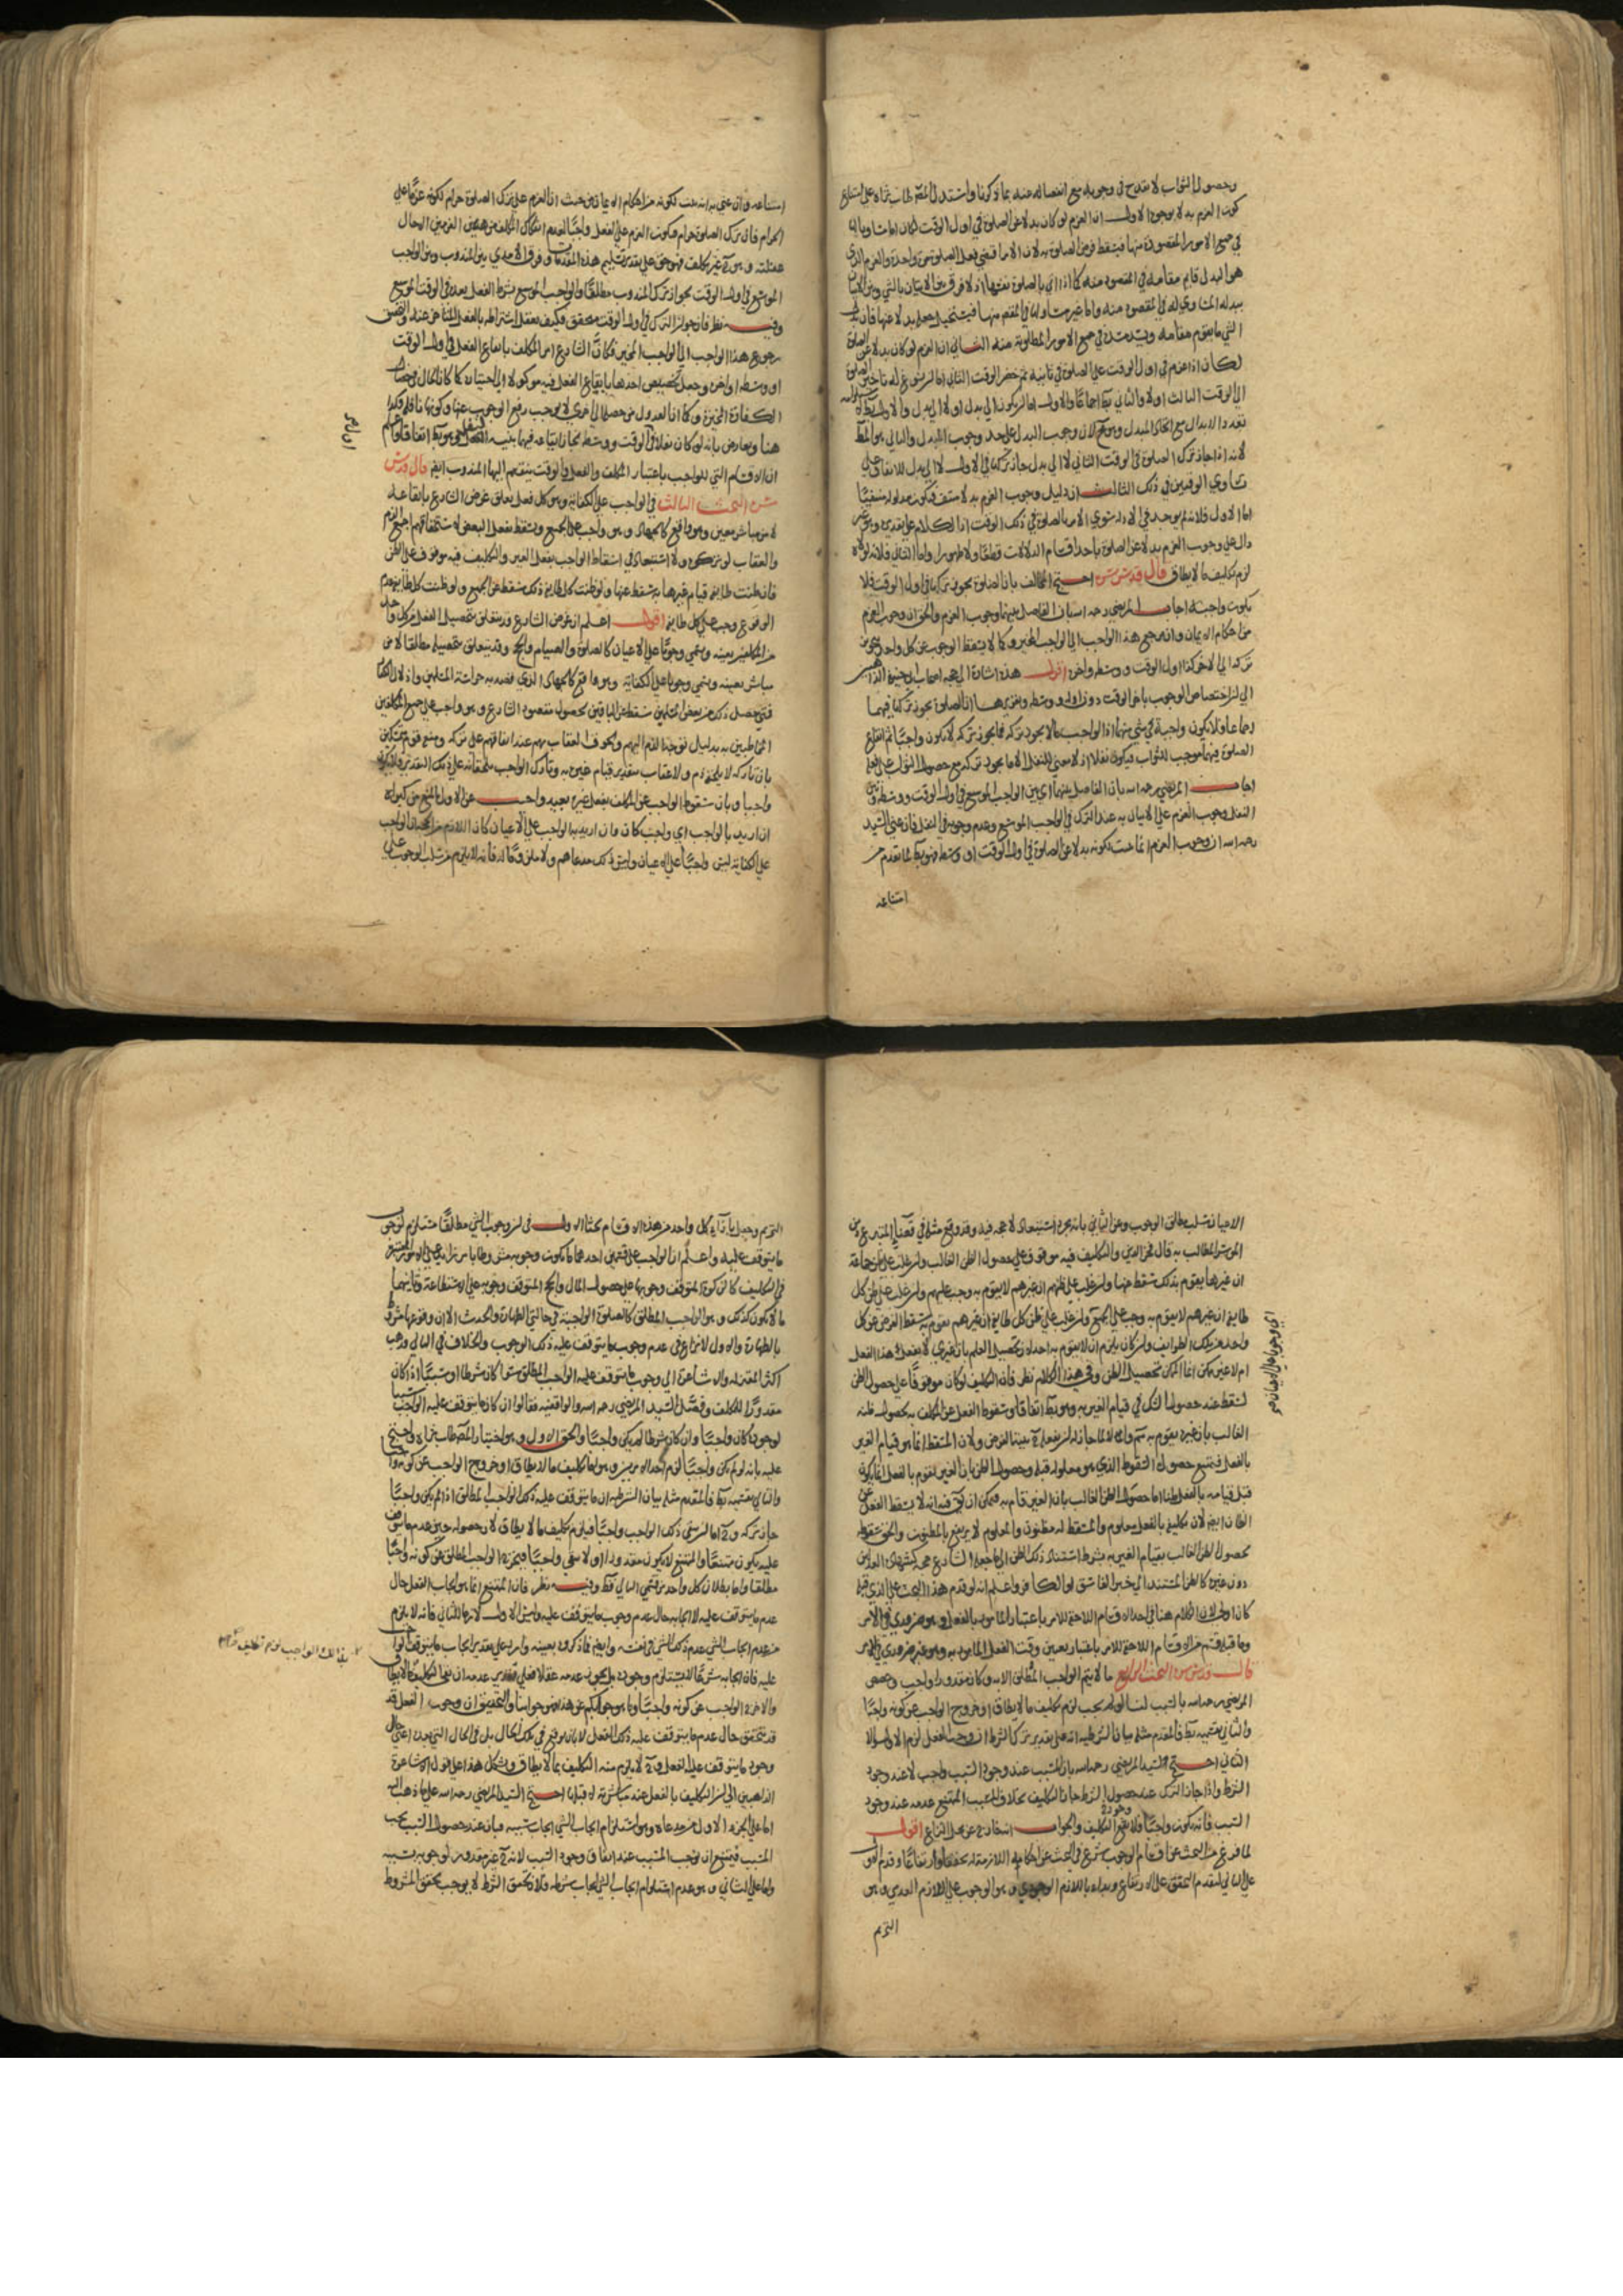 وحصول الثواب لا يقدح في وجوبه مع انفصاله عنه بما ذكرنا واستدل المص طاب ثراه على امتناع
كون العزم بدلا بوجوه الاول ان العزم لو كان بدلا عن الصلوة في اول الوقت لكان اما مساويا لها
في جميع الامور المقصودة منها فيسقط فرض الصلوة به لان الامر اقتضى فعل الصلوة مرة واحدة والعزم الذي
هو البدل قايم مقامه في المقصود منه كما اذا اتى بالصلوة نفسها اذ لا فرق بين الاتيان بالشئ وبين الاتيان
ببدله المساوي له في المقصود منه واما غير مساو لها في المقصود منها فيستحيل جعله بدلا عنها فان بدل
الشئ ما يقوم مقامه ويسد مسده في جميع الامور المطلوبة منه الثاني ان العزم لو كان بدلا عن الصلوة
لكان اذا عزم في اول الوقت على الصلوة في ثانيه ثم حضر الوقت الثاني اما ان يسوغ له تاخير الصلوة
الى الوقت الثالث او لا والثاني بط اجماعا والاول اما ان يكون الى بدل او لا الى بدل والاول بط
تعدد الابدال مع اتحاد المبدل وهو مح لان وجوب البدل على حد وجوب المبدل والثاني هو المط
لانه اذا جاز ترك الصلوة في الوقت الثاني لا الى بدل جاز تركها في الاول لا الى بدل للاتفاق على
تساوي الوقتين في ذلك الثالث ان دليل وجوب العزم بدلا منتف فيكون مدلوله منتفيا
اما الاول فلانه لم يوجد في الادلة سوى الامر بالصلوة في ذلك الوقت اذ الكلام على تقديره وهو غير
دال على وجوب العزم بدلا عن الصلوة باحد اقسام الدلالات قطعا ولا ظهورا واما الثاني فلانه لولاه
لزم تكليف ما لا يطاق قال قدس سره احتج المخالف بان الصلوة يجوز تركها في اول الوقت فلا
تكون واجبة اجاب المرتضى رحمه الله بان الفاصل بينهما وجوب العزم والحق ان وجوب العزم
من احكام الايمان وانه يرجع هذا الواجب الى الواجب المخير وكما لا يسقط الوجوب عن كل واحد بجواز
تركه الى الاخر كذا اول الوقت ووسطه واخره اقول هذه اشارة الى حجة اصحاب ابي حنيفة الذاهبين
الى اختصاص الوجوب باخر الوقت دون اوله ووسطه وتقريرها ان الصلوة يجوز تركها فيهما
اجماعا فلا تكون واجبة في شئ منهما اذ الواجب ما لا يجوز تركه فما يجوز تركه لا يكون واجبا ثم ايقاع
الصلوة فيهما موجب للثواب فيكون نفلا اذ لا معنى للنفل الا ما يجوز تركه مع حصول الثواب على فعله
اجاب المرتضى رحمه الله بان الفاصل بينهما اي بين الواجب الموسع في اول الوقت ووسطه وبين
النفل وجوب العزم على الاتيان به عند الترك في الواجب الموسع وعدم وجوبه في النفل فان عنى السيد
رحمه الله ان وجوب العزم انما ثبت لكونه بدلا عن الصلوة في اول الوقت او وسطه فهو بط لما تقدم من
امتناعه
امتناعه وان عنى به انه يثبت لكونه من احكام الايمان من حيث ان العزم على ترك الصلوة حرام لكونه عزما على
الحرام فان ترك الصلوة حرام فيكون العزم على الفعل واجبا لعدم انفكاك المكلف من هذين العزمين الا حال
غفلته وهو ح غير مكلف فهو حق على تقدير تسليم هذه المقدمات وفرق الآمدي بين المندوب وبين الواجب
الموسع في اول الوقت بجواز ترك المندوب مطلقا والواجب الموسع بشرط الفعل بعده في الوقت الموسع
وفيه نظر فان جواز الترك في اول الوقت متحقق فكيف يعقل اشتراطه بالفعل المتاخر عنه والتحقيق
رجوع هذا الواجب الى الواجب المخير فكأن الشارع امر المكلف بايقاع الفعل في اول الوقت
او وسطه او اخره وجعل تخصيص احدها بايقاع الفعل فيه موكولا الى اختياره كما كان الحال في خصال
الكفارة المخيرة وكما ان العدول من خصلة الى اخرى لا يوجب رفع الوجوب عنها وكونها نافلة فكذا
هنا ويعارض بانه لو كان نفلا في الوقت ووسطه لجاز ايقاعه فيهما بنية النفل وهو بط اتفاقا واعلم
ان الاقسام التي للواجب باعتبار المكلف والفعل والوقت ينقسم اليها المندوب ايضا قال قدس
سره البحث الثالث في الواجب على الكفاية وهو كل فعل يتعلق غرض الشارع بايقاعه
لا من مباشر معين وهو واقع كالجهاد وهو واجب على الجميع ويسقط بفعل البعض لاستحقاقهم اجمع الذم
والعقاب لو تركوه ولا استبعاد في اسقاط الواجب بفعل الغير والتكليف فيه موقوف على الظن
فان ظنت طايفة قيام غيرها به سقط عنها ولو ظنت كل طايفة ذلك سقط عن الجميع ولو ظنت كل طايفة عدم
الوقوع وجب على كل طايفة اقول اعلم ان غرض الشارع قد يتعلق بتحصيل الفعل من كل واحد
من المكلفين بعينه ويسمى وجوبا على الاعيان كالصلوة والصيام والحج وقد يتعلق بتحصيله مطلقا لا من
مباشر بعينه ويسمى وجوبا على الكفاية وهو واقع كالجهاد الذي قصد به حراسة المسلمين واذلال الكفار
فمتى حصل ذلك من بعض المسلمين سقط عن الباقين لحصول مقصود الشارع وهو واجب على جميع المكلفين
المخاطبين به بدليل توجه الذم اليهم ولحوق العقاب بهم عند اتفاقهم على تركه ومنع قوم
بان تاركه لا يلحقه ذم ولا عقاب بتقدير قيام غيره به وتارك الواجب مستحقا له على ذلك التقدير فلا يكون
واجبا وبان سقوط الواجب عن المكلف بفعل غيره بعيد واجيب عن الاول بالمنع من كبراه
ان اريد بالواجب اي واجب كان وان اريد به الواجب على الاعيان كان اللازم من الحجة ان الواجب
على الكفاية ليس واجبا على الاعيان وليس ذلك مدعاهم ولا ملزوما له فانه لا يلزم من سلب الوجوب على
الاعيان سلب مطلق الوجوب وعن الثاني بانه مجرد استبعاد لا حجة فيه وقد وقع مثله في قضاء المتبرع دين
الموسر المطالب به قال فخر الدين والتكليف فيه موقوف على حصول الظن الغالب ولو غلب على ظن جماعة
ان غيرها يقوم بذلك سقط عنها ولو غلب على ظنهم ان غيرهم لا يقوم به وجب عليهم ولو غلب على ظن كل
طايفة ان غيرهم لا يقوم به وجب على الجميع ولو غلب على ظن كل طايفة ان غيرهم يقوم به سقط الفرض عن كل
واحد من تلك الطوايف وان كان يلزم ان لا يقوم به احد لان تحصيل العلم بان غيري لا يفعل هذا الفعل
ام لا غير ممكن انما الممكن تحصيل الظن وفي هذا الكلام نظر فان التكليف لو كان موقوفا على حصول الظن
لسقط عند حصول الشك في قيام الغير به وهو بط اتفاقا وسقوط الفعل عن المكلف به بحصول ظنه
الغالب بان غيره يقوم به مم والا لما جاز له ان يفعله ح بنية الفرض ولان المسقط انما هو قيام الغير
بالفعل فيمتنع حصول السقوط الذي هو معلوله قبله وحصول الظن بان الغير يقوم بالفعل انما يكون
قبل قيامه بالفعل ظنا اما حصول الظن الغالب بان الغير قام به فيمكن ان يق فيه انه لا يسقط الفعل عن
الظان ايضا لان تكليفه بالفعل معلوم والمسقط له مظنون والمعلوم لا يرتفع بالمظنون والحق سقوطه
بحصول الظن الغالب بقيام الغير به بشرط استناد ذلك الظن الى ما جعله الشارع حجة كشهادة العدلين
دون غيره كالظن المستند الى خبر الفاسق او الكافر واعلم انه لو قدم هذا البحث على الذي قبله
كان اولى لان الكلام هنا في احد الاقسام اللاحقة للامر باعتبار المامور بالفعل وهو ضروري في الامر
وما قبله قسم من الاقسام اللاحقة للامر باعتبار تعيين وقت الفعل المامور به وهو غير ضروري في الامر
قال قدس سره البحث الرابع ما لا يتم الواجب المطلق الا به وكان مقدورا واجب وخصص
المرتضى رحمه الله بالسبب لنا لو لم يجب لزم تكليف ما لا يطاق او خروج الواجب عن كونه واجبا
والتالي بقسميه بط فالمقدم مثله بيان الشرطية انه على تقدير ترك الشرط ان وجب الفعل لزم الاول والا
الثاني احتج السيد المرتضى رحمه الله بان المسبب عند وجود السبب واجب لا عند وجود
الشرط واذا جاز الترك عند حصول الشرط جاز التكليف بخلاف المسبب الممتنع عدمه عند وجود
السبب فانه يكون واجبا فلا يقع التكليف والجواب انه خارج عن محل النزاع اقول
لما فرغ من البحث عن اقسام الوجوب شرع في البحث عن احكامه اللازمة له تحققا وارتفاعا وقدم الاول
على الثاني لتقدم التحقق على الارتفاع وبداء باللازم الوجودي وهو الوجوب على اللازم العدمي وهو
التحريم
اي وجوبا على الاعيان صح
التحريم وجعل بازاء كل واحد من هذه الاقسام بحثا الاول في ان وجوب الشئ مطلقا مستلزم لوجوب
ما يتوقف عليه واعلم ان الواجب على قسمين احدهما ما يكون وجوبه مشروطا بامر زايد على الامور المعتبرة
في التكليف كالزكوة المتوقف وجوبها على حصول المال والحج المتوقف وجوبه على الاستطاعة وثانيهما
ما لا يكون كذلك وهو الواجب المطلق كالصلوة الواجبة في حالتي الطهارة والحدث الا ان وقوعها مشروط
بالطهارة والاول لا نزاع في عدم وجوب ما يتوقف عليه ذلك الوجوب والخلاف في الثاني وذهب
اكثر المعتزلة والاشاعرة الى وجوب ما يتوقف عليه الواجب المطلق سواء كان شرطا او سببا اذا كان
مقدورا للمكلف وفصل السيد المرتضى رحمه الله والواقفية فقالوا ان كان ما يتوقف عليه الواجب سببا
لوجوده كان واجبا وان كان شرطا لم يكن واجبا والحق الاول وهو اختيار المص طاب ثراه واحتج
عليه بانه لو لم يكن واجبا لزم احد الامرين وهو اما تكليف ما لا يطاق او خروج الواجب عن كونه واجبا
والتالي بقسميه بط فالمقدم مثله بيان الشرطية ان ما يتوقف عليه ذلك الواجب المطلق اذا لم يكن واجبا
جاز تركه وح اما ان يبقى ذلك الواجب واجبا فيلزم تكليف ما لا يطاق لان حصوله حين عدم ما يتوقف
عليه يكون ممتنعا والممتنع لا يكون مقدورا او لا يبقى واجبا فيخرج الواجب المطلق عن كونه واجبا
مطلقا واما بطلان كل واحد من قسمي التالي فظ وفيه نظر فان الممتنع انما هو ايجاب الفعل حال
عدم ما يتوقف عليه لا ايجابه حال عدم وجوب ما يتوقف عليه وليس الاول لازما للثاني فانه لا يلزم
من عدم ايجاب الشئ عدم ذلك الشئ في نفسه وايضا فما ذكروه بعينه وارد على تقدير ايجاب ما يتوقف الواجب
عليه فان ايجابه شرعا لا يستلزم وجوده بل يجوز عدمه عقلا فعلى تقدير عدمه ان بقي التكليف
والا خرج الواجب عن كونه واجبا وما هو جوابكم عن هذا فهو جوابنا والتحقيق ان وجوب الفعل قد
قد يتحقق حال عدم ما يتوقف عليه ذلك الفعل لا بان يوقع في تلك الحال بل في الحال التي بعد اعني حال
وجود ما يتوقف عليه الفعل وح لا يلزم منه التكليف بما لا يطاق ويشكل هذا على قول الاشاعرة
الذاهبين الى ان التكليف بالفعل عند مباشرته لا قبلها احتج السيد المرتضى رحمه الله على ما ذهب اليه
اما على الجزء الاول من مدعاه وهو استلزام ايجاب الشئ ايجاب سببه فبان عند حصول السبب يجب
المسبب فيمتنع ان يوجب المسبب عند اتفاق وجود السبب لانه ح غير مقدور لوجوبه بسببه
واما على الثاني وهو عدم استلزام ايجاب الشئ ايجاب شرطه فلان تحقق الشرط لا يوجب تحقق المشروط